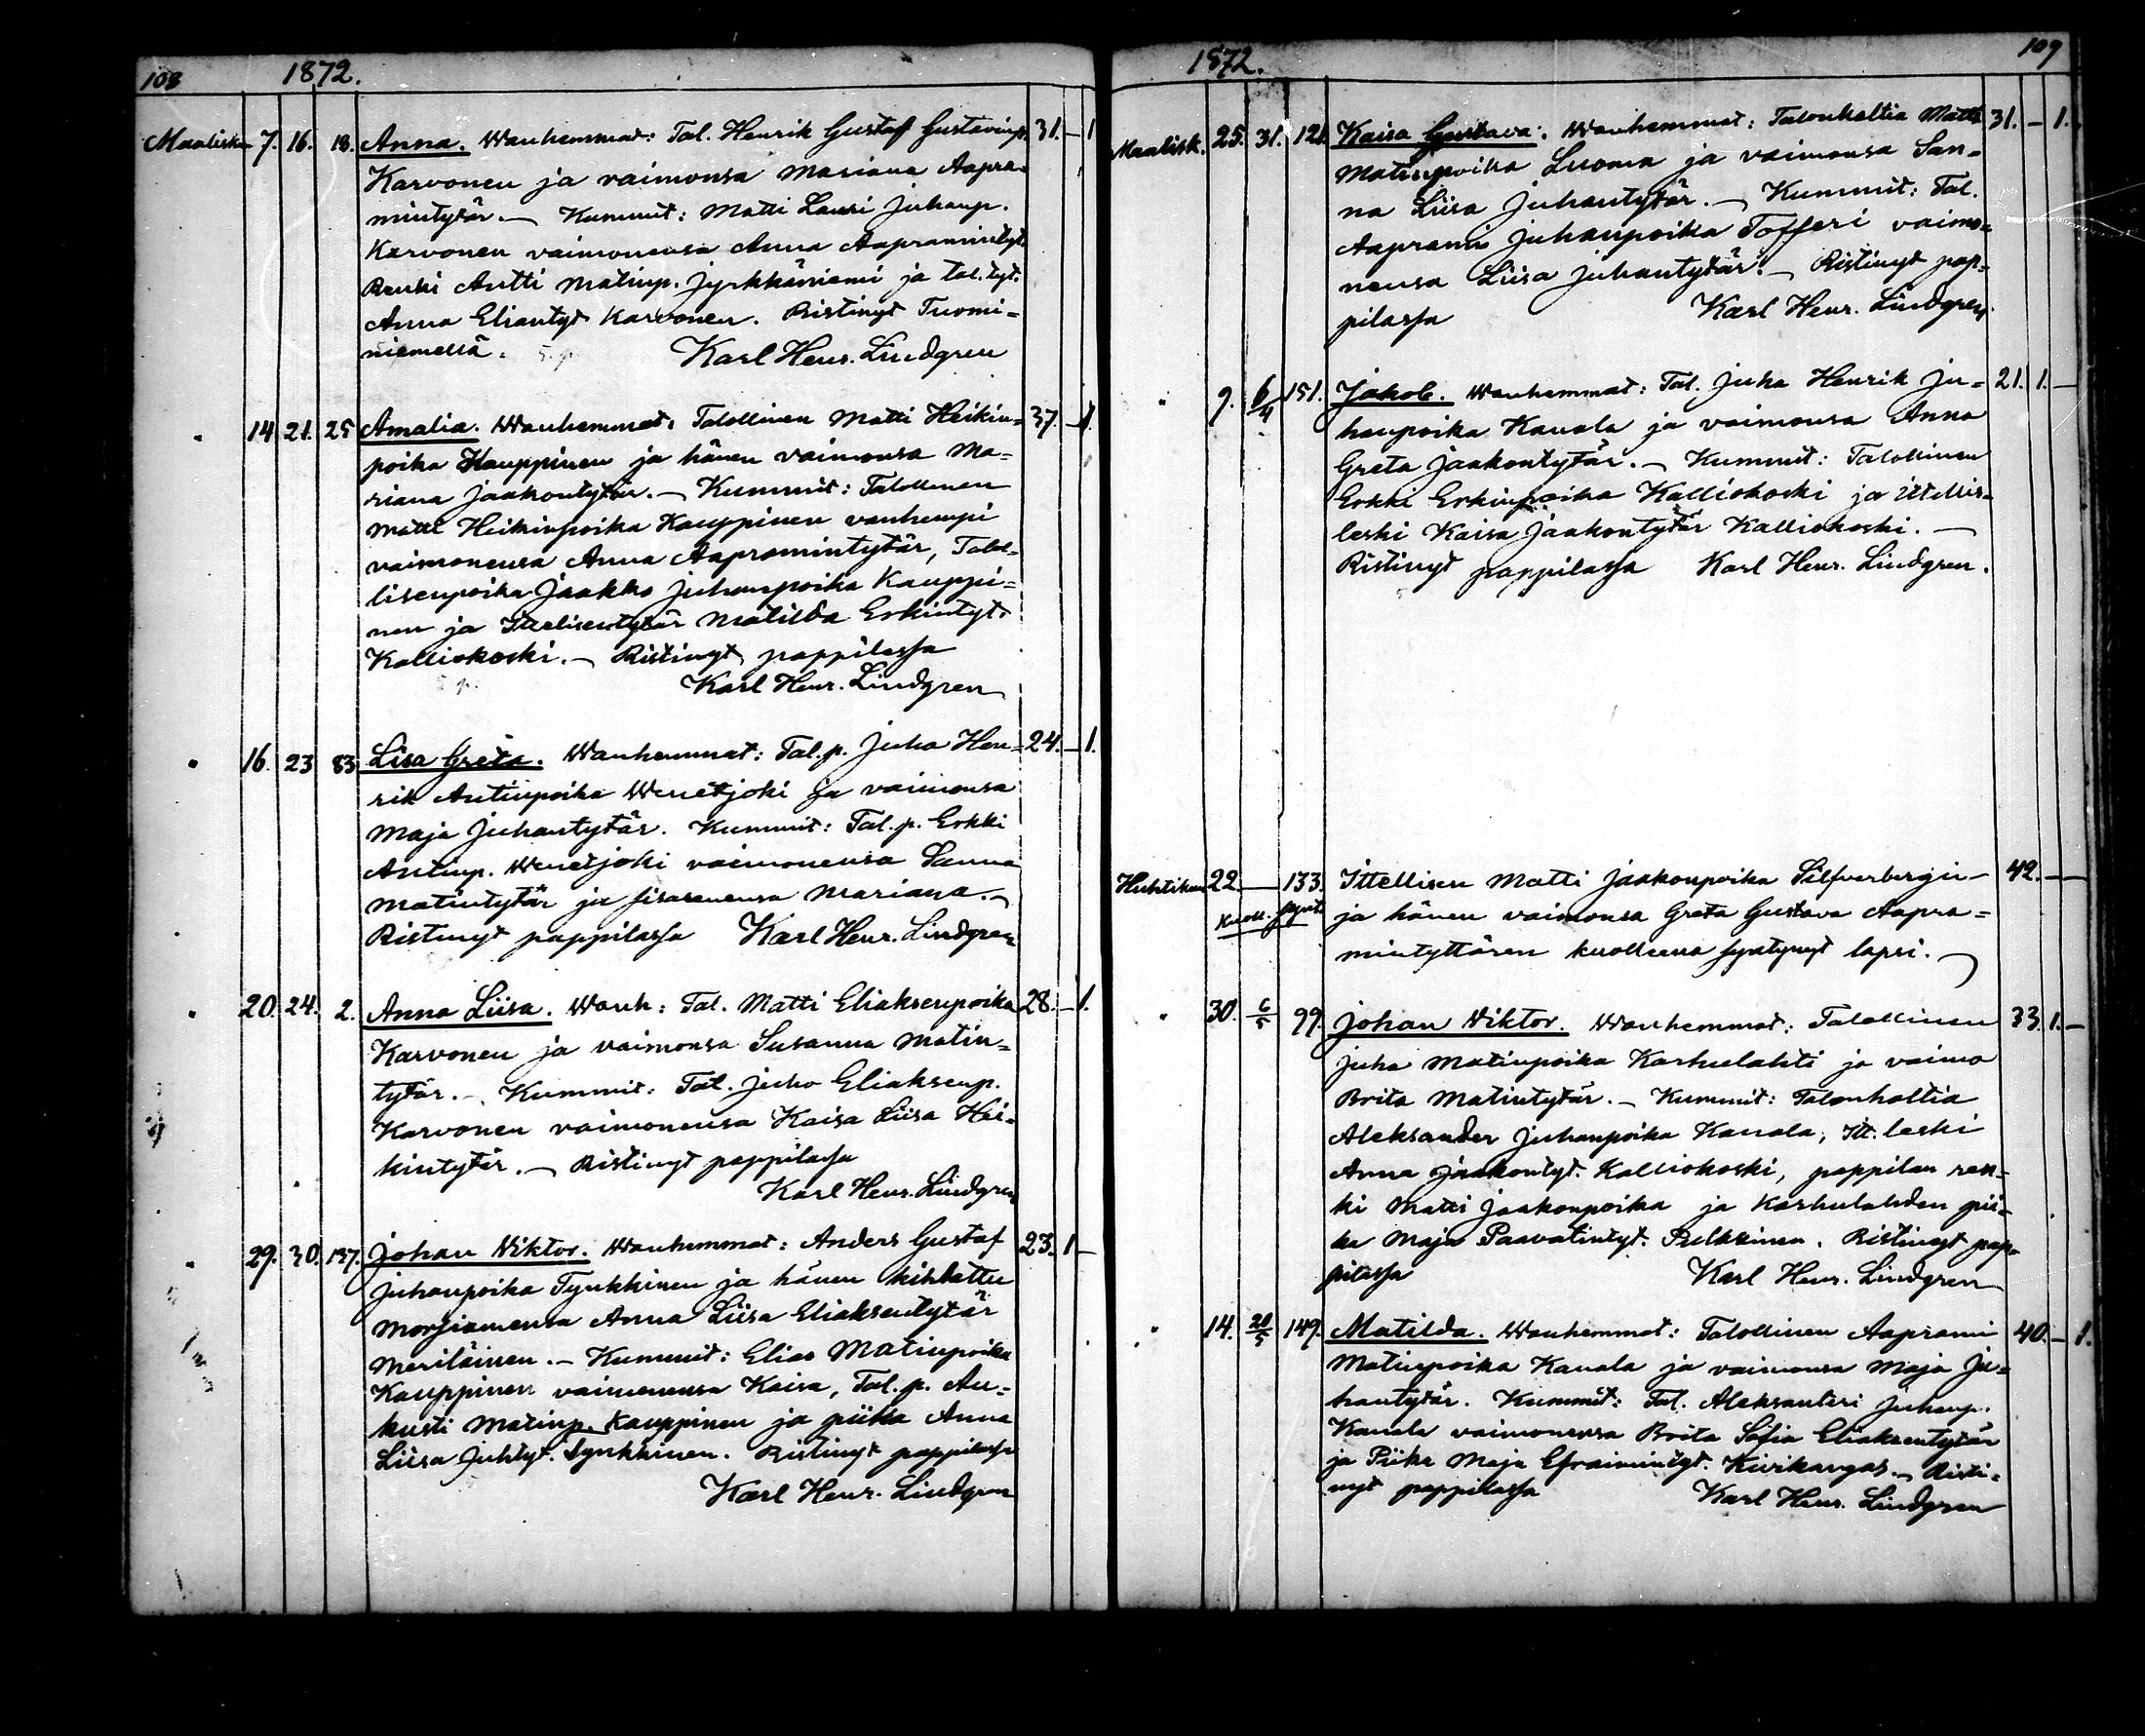 108 1872.
Maalisk. 7. 16. 18. Anna. Wanhemmat: Tal. Henrik Gustaf Gustavinp. 31. – 1
Karvonen ja vaimonsa Mariana Aapra-
mintytär. – Kummit: Matti Lauri Juhanp.
Karvonen vaimonensa Anna Aapramintyt.
Renki Antti Matinp. Jyrkkäniemi ja tal. tyt.
Anna Eliantyt Karvonen. Ristinyt Tuomi-
niemellä. Karl Henr. Lindgren
" 14 21. 25 Amalia. Wanhemmat: Talollinen Matti Heikin- 37. – 1.
poika Kauppinen ja hänen vaimonsa Ma-
riana Jaakontytär. – Kummit: Talollinen
Matti Heikinpoika Kauppinen vanhempi
vaimonensa Anna Aapramintytär, Talol-
lisenpoika Jaakko Juhanpoika Kauppi-
nen ja Ittellisentytär Matilda Erkintyt.
Kalliokoski. – Ristinyt pappilassa
Karl Henr. Lindgren
" 16. 23 83 Lisa Greta. Wanhemmat: Tal. p. Juho Hen- 24. – 1.
rik Antinpoika Wenetjoki ja vaimonsa
Maja Juhantytär. Kummit: Tal. p. Erkki
Antinp. Wenetjoki vaimonensa Sanna
Matintytär ja sisarenensa Mariana. –
Ristinyt pappilassa Karl Henr. Lindgren
" 20. 24. 2. Anna Liisa. Wanh: Tal. Matti Eliaksenpoika 28. – 1.
Karvonen ja vaimonsa Susanna Matin-
tytär. – Kummit: Tal. Juho Eliaksenp.
Karvonen vaimonensa Kaisa Liisa Hei-
kintytär. – Ristinyt pappilassa
Karl Henr. Lindgren
" 29. 30. 137. Johan Viktor. Wanhemmat: Anders Gustaf 23. 1 –
Juhanpoika Tynkkinen ja hänen kihlattu
morsiamensa Anna Liisa Eliaksentytär
Meriläinen. – Kummit: Elias Matinpoika
Kauppinen vaimonensa Kaisa, Tal. p. Au-
kusti Matinp. Kauppinen ja piika Anna
Liisa Juhtyt. Tynkkinen. Ristinyt pappilassa
Karl Henr. Lindgren
1872. 109
Maalisk. 25. 31. 121. Kaisa Gustava. Wanhemmat: Talonhaltia Matti 31. – 1.
Matinpoika Luoma ja vaimonsa San-
na Liisa Juhantytär. – Kummit: Tal.
Aaprami Juhanpoika Tofferi vaimo-
nensa Liisa Juhantytär. – Ristinyt pap-
pilassa Karl Henr. Lindgren.
" 9. 6/4 151. Jakob. Wanhemmat: Tal. Juha Henrik Ju- 21. 1. –
hanpoika Kanala ja vaimonsa Anna
Greta Jaakontytär. – Kummit: Talollinen
Erkki Erkinpoika Kalliokoski ja Ittellis-
leski Kaisa Jaakontytär Kalliokoski. –
Ristinyt pappilassa Karl Henr. Lindgren.
Huhtikuu 22. – 133. Ittellisen Matti Jaakonpoika Silfverbergin 42. – –
kuoll. synt. ja hänen vaimonsa Greta Gustava Aapra-
mintyttären kuolleena syntynyt lapsi. –
" 30. 6/5 99. Johan Viktor. Wanhemmat: Talollinen 33. 1. –
Juha Matinpoika Karhulahti ja vaimo
Brita Matintytär. – Kummit: Talonhaltia
Aleksander Juhanpoika Kanala, Itt. leski
Anna Jaakontyt. Kalliokoski, pappilan ren-
ki Matti Jaakonpoika ja Karhulahden pii-
ka Maja Paavalintyt. Pulkkinen. Ristinyt pap-
pilassa Karl Henr. Lindgren
" 14. 20/5 149. Matilda. Wanhemmat: Talollinen Aaprami 40. – 1.
Matinpoika Kanala ja vaimonsa Maja Ju-
hantytär. Kummit: Tal. Aleksanteri Juhanp.
Kanala vaimonensa Brita Sofia Eliaksentytär
ja Piika Maja Efraimintyt. Kivikangas. – Risti-
nyt pappilassa Karl Henr. Lindgren